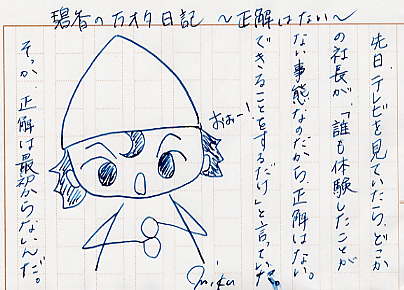 碧香の万オタ日記 ～正解はない～
先日、テレビを見ていたら、どこか
の社長が、「誰も体験したことが
ない事態なのだから正解はない。
できることをするだけ」と言っていた。
おぉー!
そっか、正解は最初からないんだ。